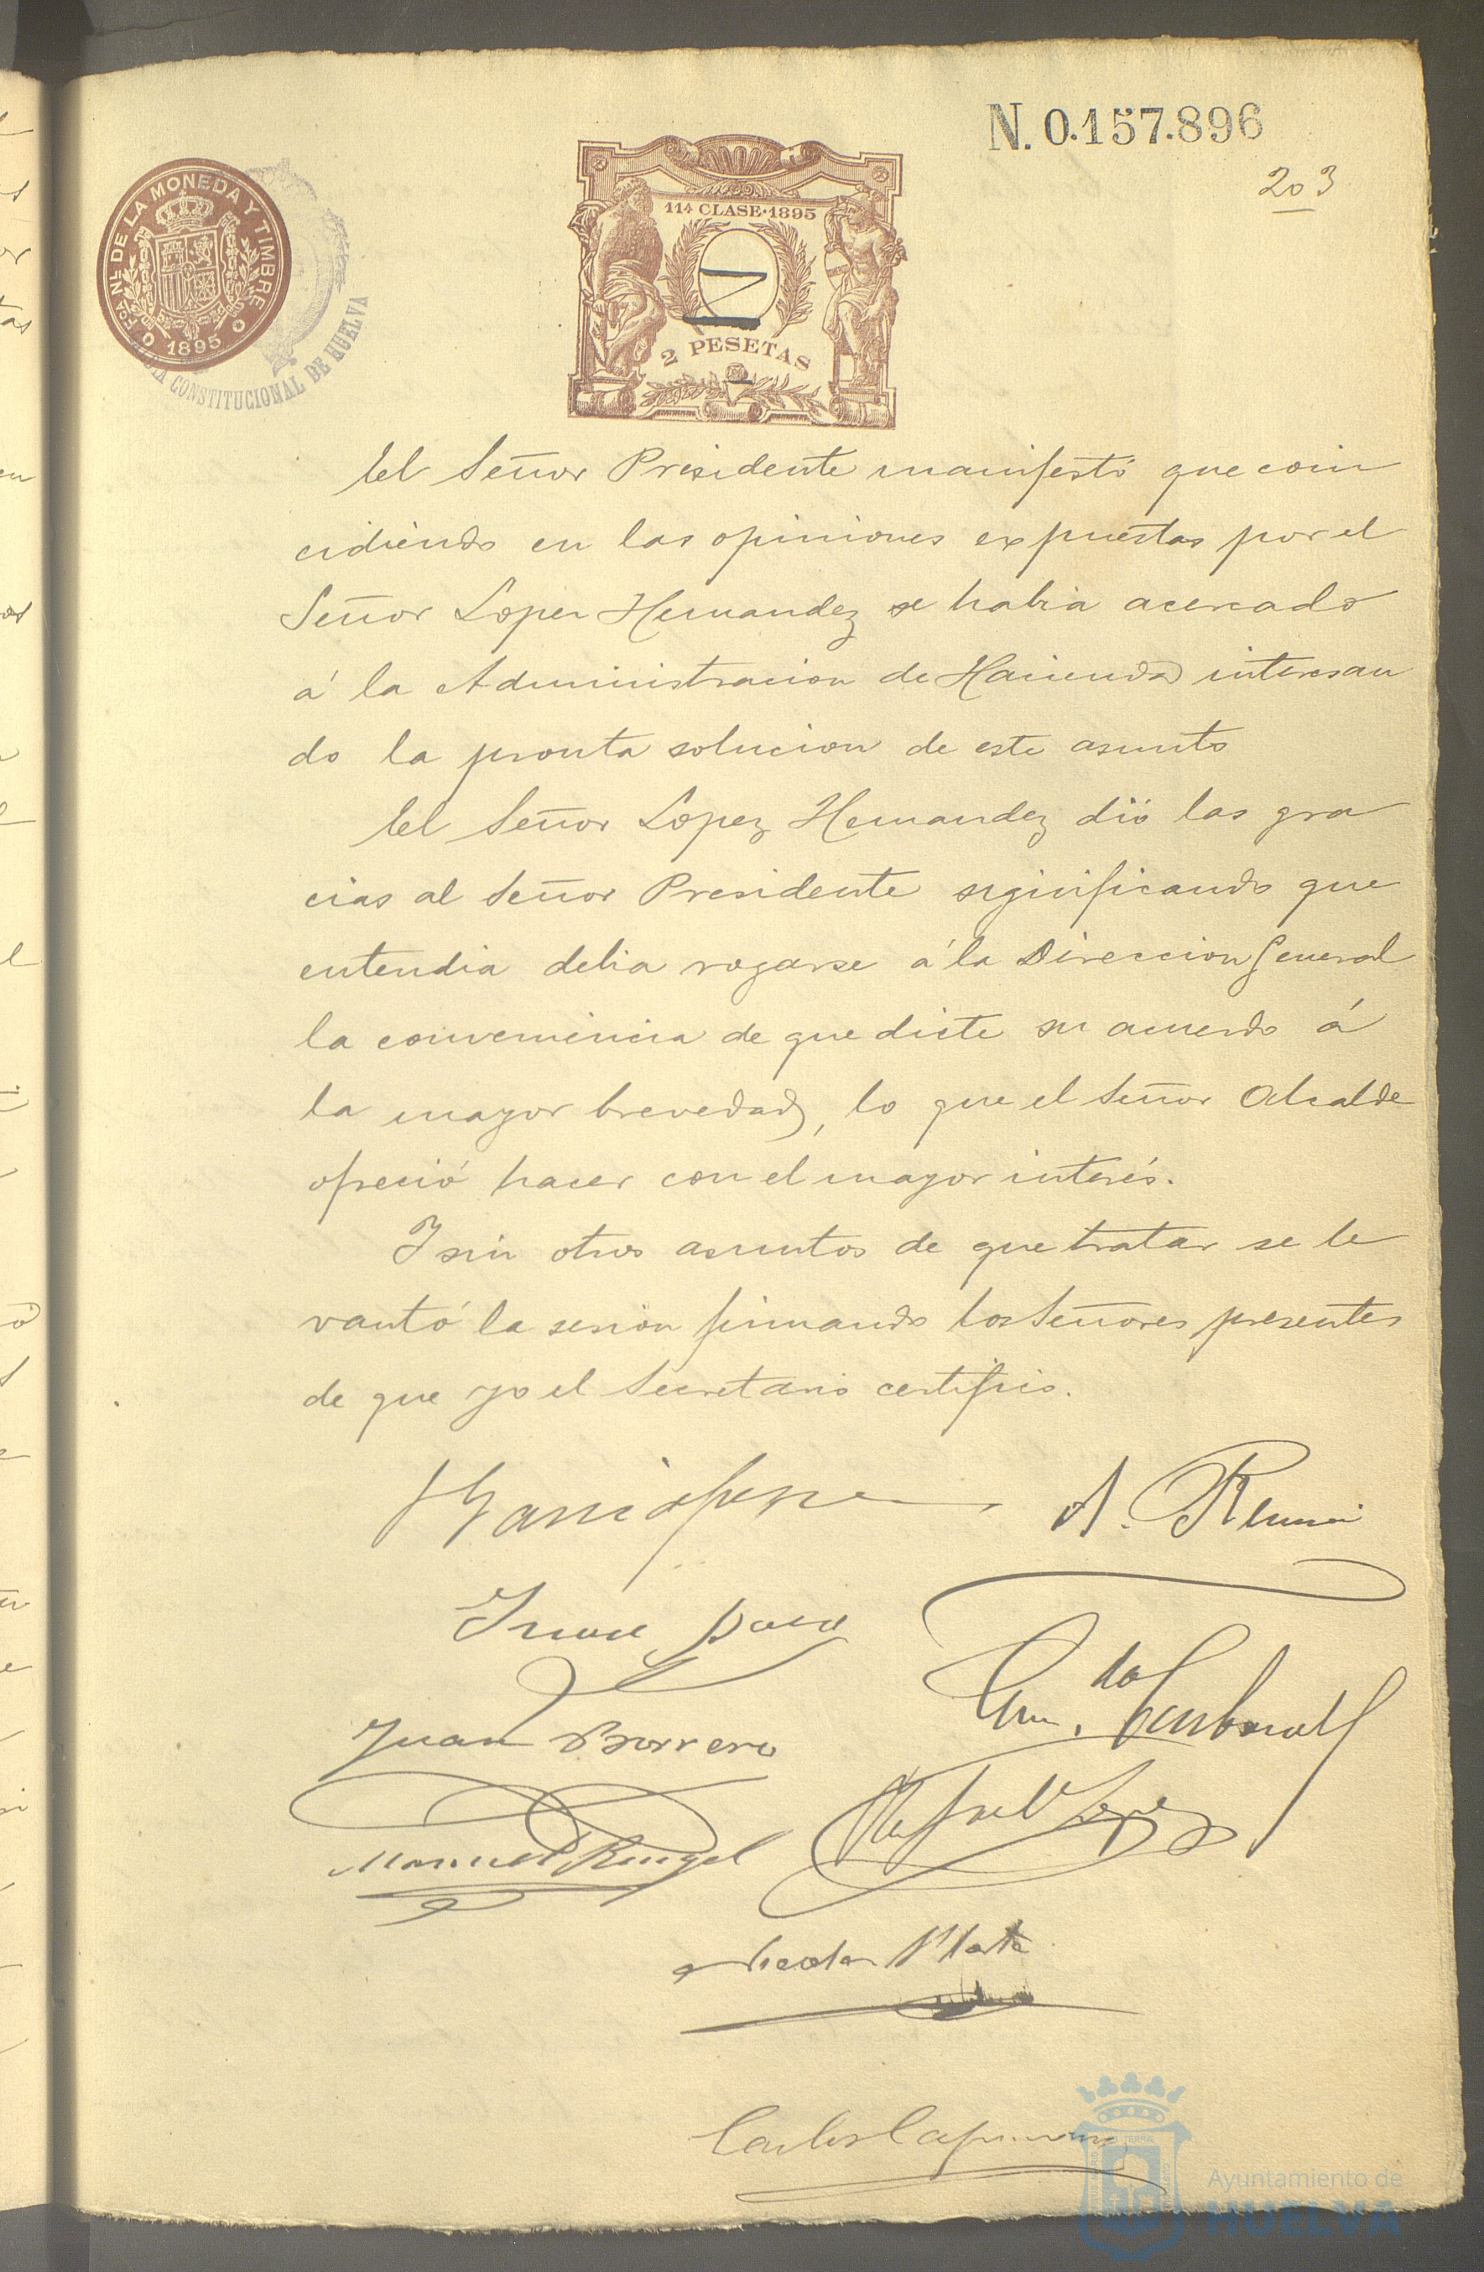 N. 0.157.896
203
FCA NL DE LA MONEDA Y TIMBRE
1895
CONSTITUCIONAL DE HUELVA
11ª CLASE·1895
2 PESETAS
El Señor Presidente manifestó que coin
cidiendo en las opiniones expuestas por el
Señor Lopez Hernandez se habia acercado
á la Administracion de Hacienda interesan
do la pronta solucion de este asunto
El Señor Lopez Hernandez dió las gra
cias al Señor Presidente significando que
entendia debia rogarse á la Direccion General
la conveniencia de que dicte su acuerdo á
la mayor brevedad, lo que el Señor Alcalde
ofreció hacer con el mayor interés.
Y sin otros asuntos de que tratar se le
vantó la sesion firmando los Señores presentes
de que yo el Secretario certifico.
A.
Juan
Juan Borrero
Rafael Lopez
Manuel Rengel
Plata
Carlos
Ayuntamiento de
HUELVA